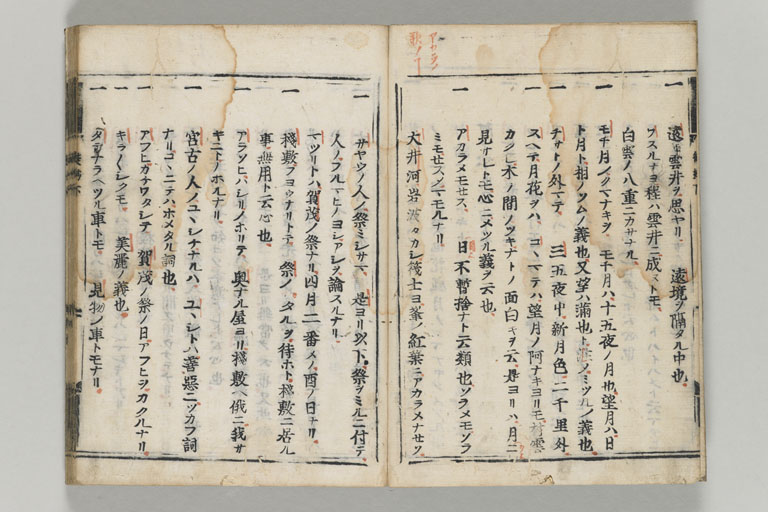 アカラメ
歌ノ事
一 遠キ雲井ヲ思ヤリ 遠境ヲ隔タル中也
ワスルナヨ程ハ雲井ニ成ヌトモ
白雲ノ八重ニカサナル
一 モチ月ノクマナキヲ モチ月ハ十五夜ノ月也望月ハ日
ト月ト相ノソムノ義也又望ハ滿也ト註ノミツルノ義也
一 チサトノ外マテ 三五夜中新月色二千里外
スヘテ月花ヲハ コヽマテハ望月ノ阿ナキヨリモ村雲
カクレ木ノ間ノツキナトノ面白キヲ云是ヨリハ月ニ
見サレトモ心ニメツル義ヲ云也
一 アカラメモセス 目不暫捨ナト云類也ワラメモツラ
ミモセスシテモルナリ
大井河岩波タカシ筏士ヨ峯ノ紅葉ニアカラメナセソ
一 サヤウノ人ノ祭ミシサマ 是ヨリ以下祭ヲミルニ付テ
人ノフルマヒノヨシアシヲ論スルナリ
マツリトハ賀茂ノ祭ナリ四月二番メノ酉ノ日ナリ
一 棧敷フヨウナリトテ 祭ノワタルヲ待ホト棧敷ニ居ル
事無用ト云心也
一 アラソヒハシリノホリテ 奥ナル屋ヨリ棧敷ヘ俄ニ我サ
キニトノホルナリ
一 宮古ノ人ノユヽシケナルハ ユヽシトハ善惡ニツカフ詞
ナリコヽニテハホメタル詞也
一 アフヒカケワタシテ 賀茂ノ祭ノ日アフヒヲカクルナリ
一 キラ〳〵シクモ 美麗ノ義也
一 タテナラヘツル車トモ 見物ノ車トモナリ